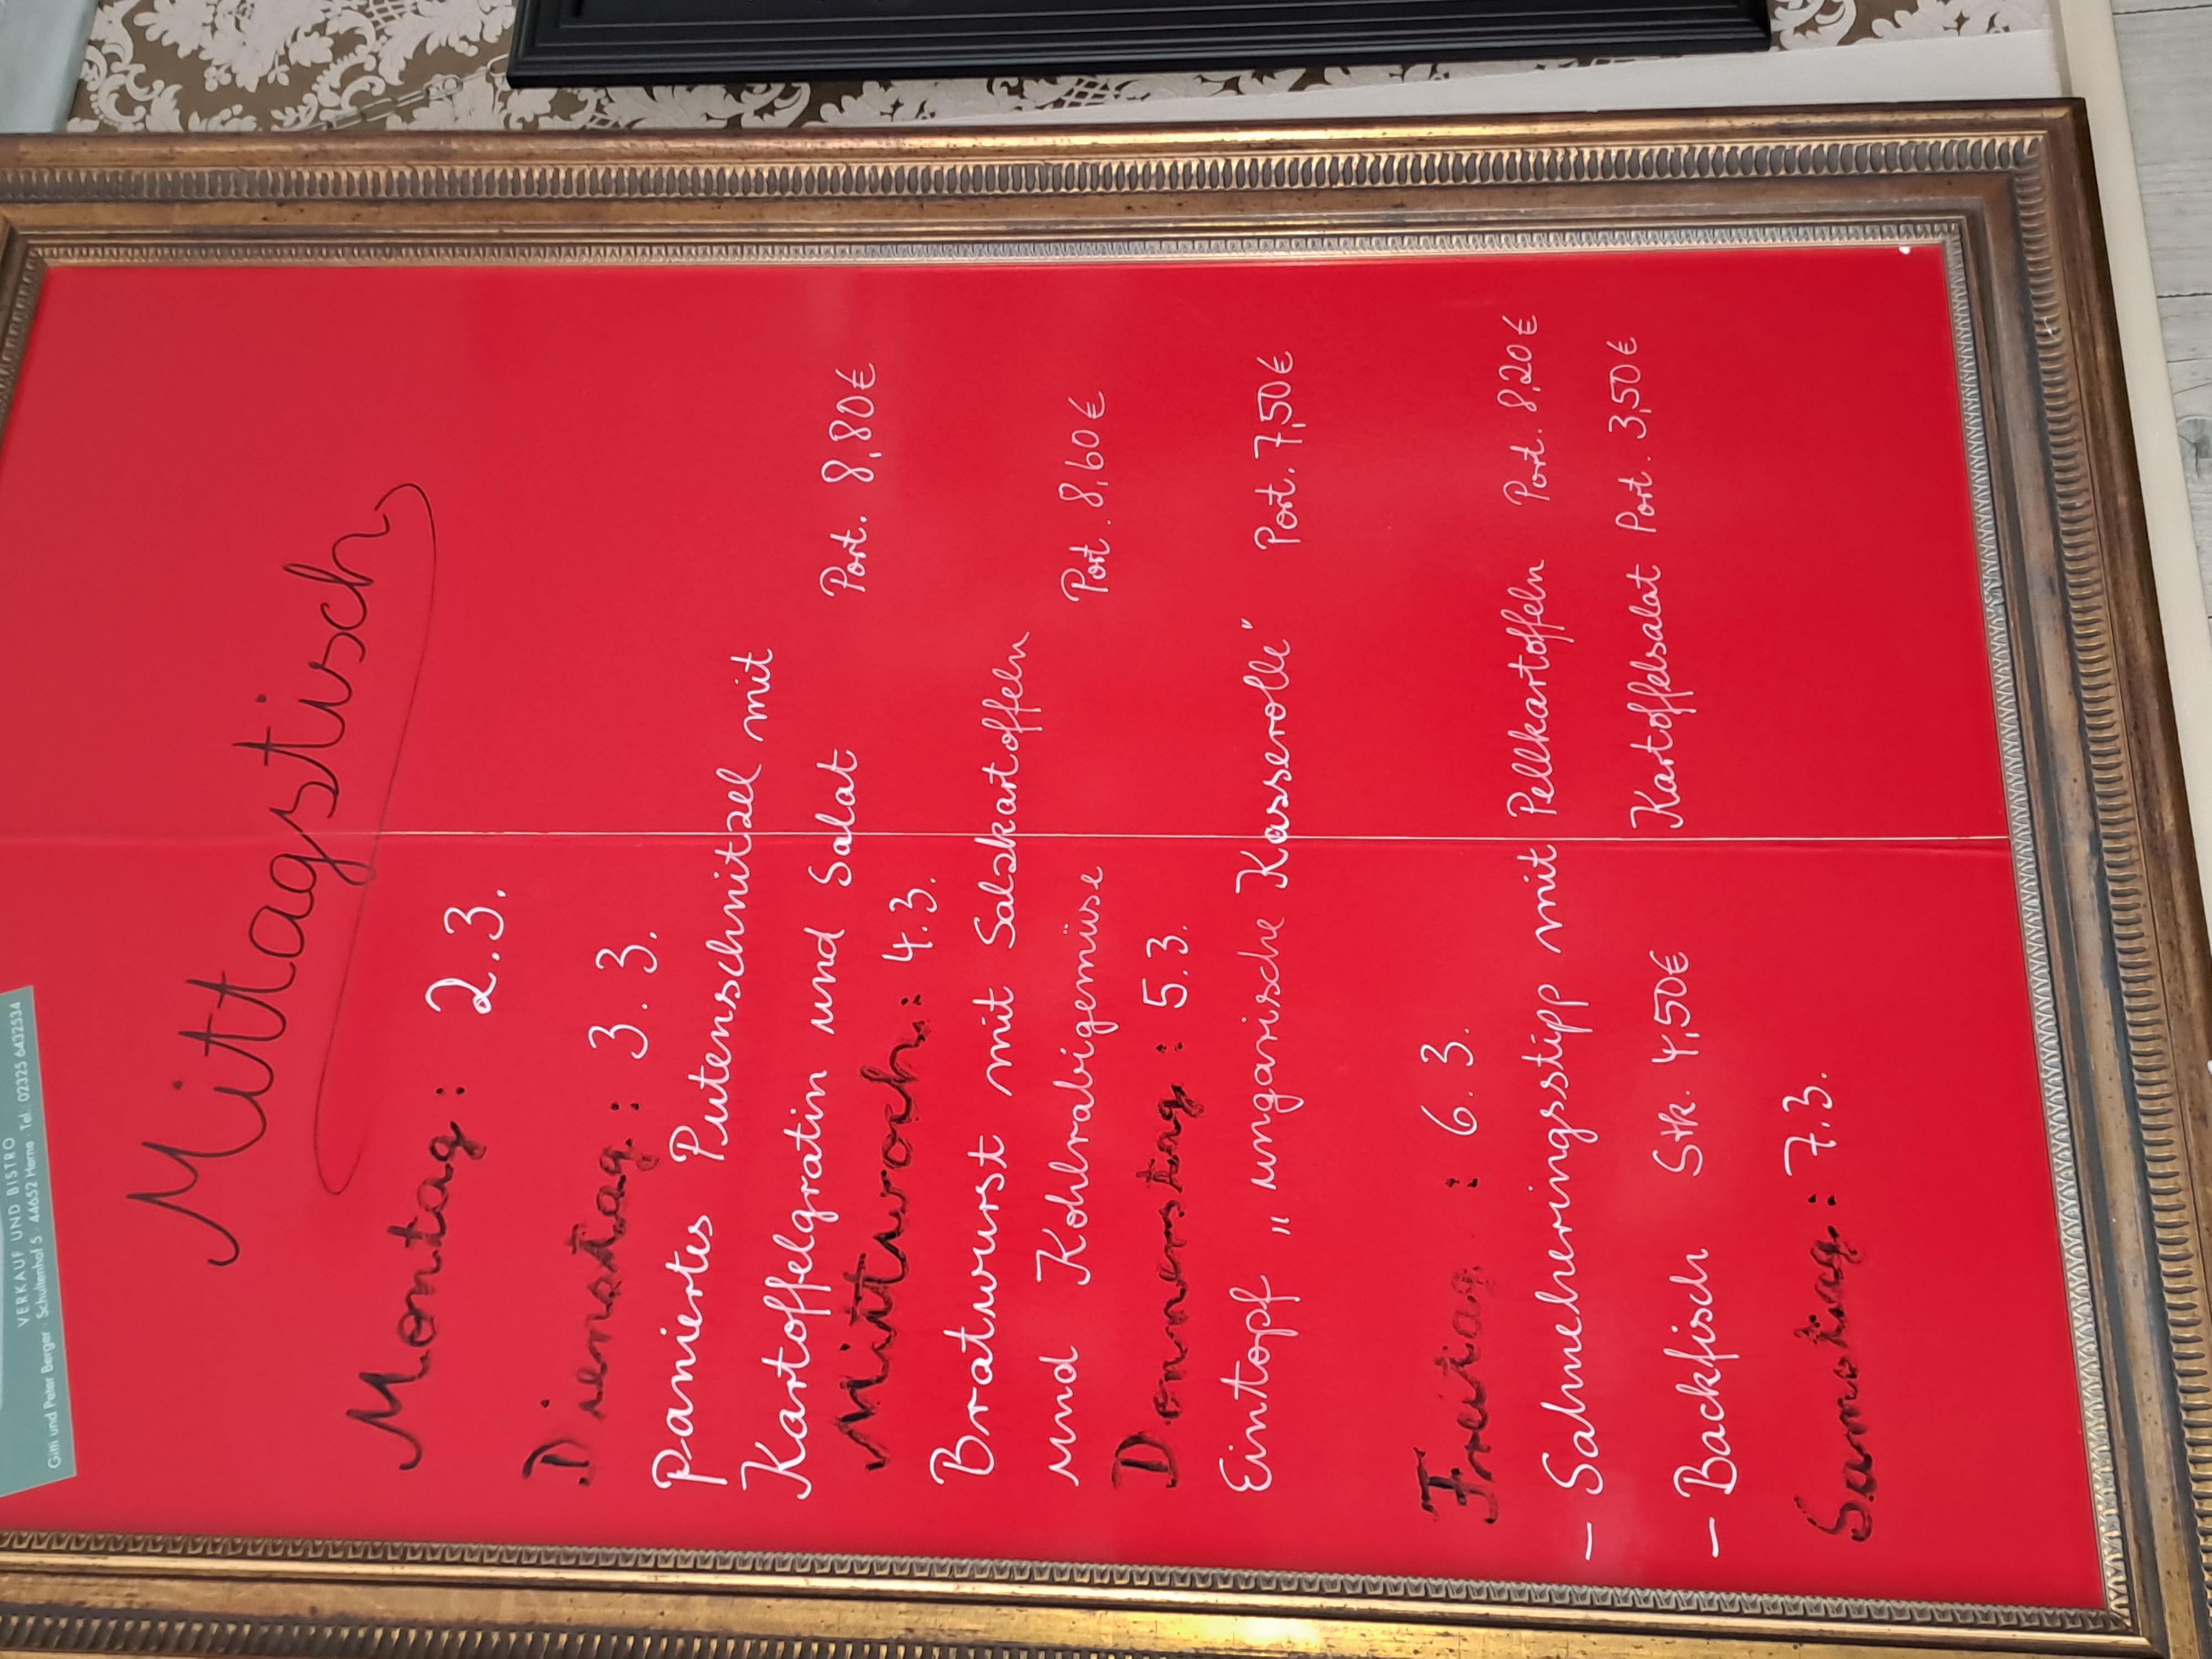 VERKAUF UND BISTRO
Gitti und Peter Berger · Schultenhof 5 · 44652 Herne · Tel. 02325 6432534
Mittagstisch
Montag : 2.3.
Dienstag : 3.3.
paniertes Putenschnitzel mit
Kartoffelgratin und Salat Port. 8,80€
Mittwoch : 4.3.
Bratwurst mit Salzkartoffeln
und Kohlrabigemüse Port. 8,60€
Donnerstag : 5.3.
Eintopf „ungarische Kasserolle" Port. 7,50€
Freitag : 6.3.
– Sahneheringsstipp mit Pellkartoffeln Port. 8,20€
– Backfisch Stk. 4,50€ Kartoffelsalat Port. 3,50€
Samstag : 7.3.